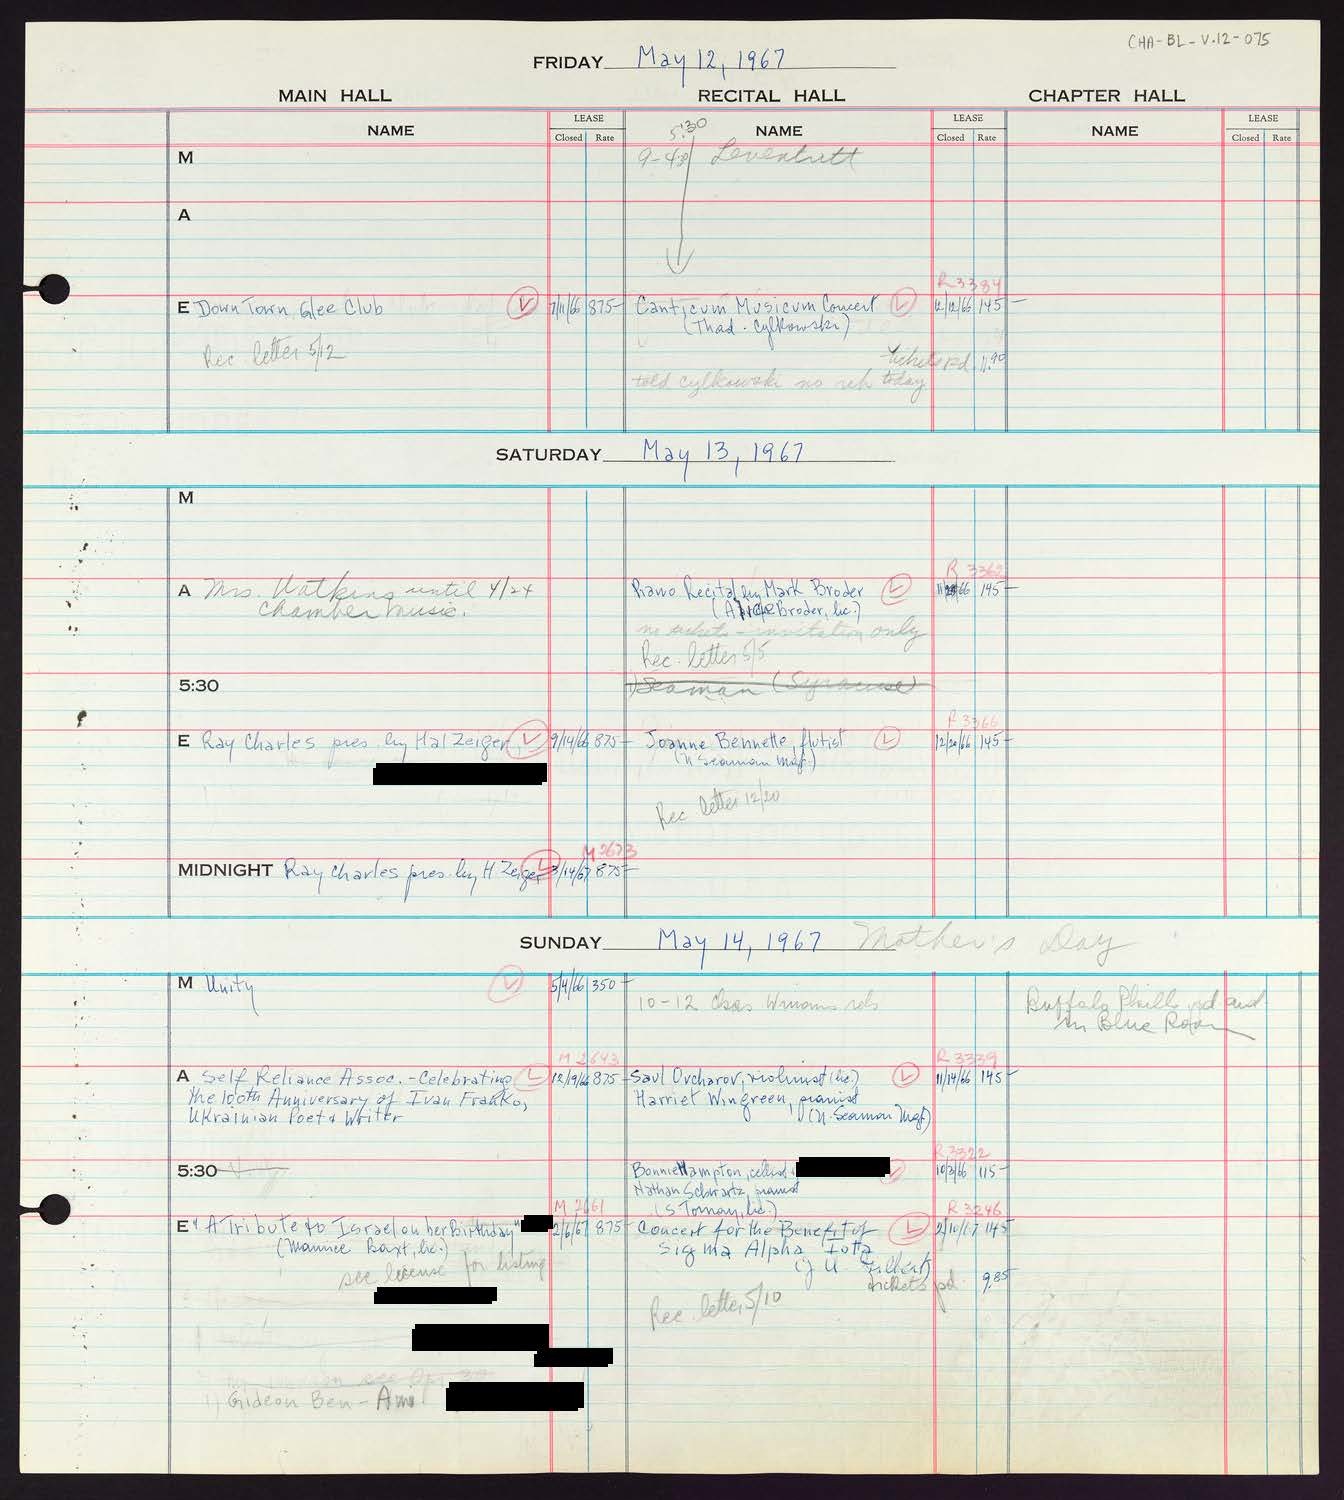 CHA-BL-V.12-075
FRIDAY May 12, 1967
MAIN HALL RECITAL HALL CHAPTER HALL
NAME LEASE Closed Rate NAME LEASE Closed Rate NAME LEASE Closed Rate
5:30
M 9-4:30 Leventritt
A
R3334
E Down Town Glee Club 7/11/66 875- Canticum Musicum Concert 12/12/66 145-
(Thad. Cylkowski)
Rec letter 5/12
tickets pd. 11.90
told cylkowski no reh today
SATURDAY May 13, 1967
M
R 3362
A Mrs. Watkins until 4/24 Piano Recital by Mark Broder 145-
chamber music. (Alice Broder, lic.)
no tickets - invitation only
Rec. letter 5/5
5:30 Seaman (Syracuse)
R 3366
E Ray Charles pres. by Hal Zeiger 9/14/66 875- Joanne Bennette, flutist 12/20/66 145-
(N Seaman Mgt.)
Rec letter 12/20
M2673
MIDNIGHT Ray Charles pres. by H Zeiger 3/14/67 875-
SUNDAY May 14, 1967 Mother's Day
M Unity 5/4/66 350- 10-12 Chas Wmams reh Buffalo Phill pd and
in Blue Room
M 2643 R 3339
A Self Reliance Assoc. - Celebrating 12/19/66 875- Saul Ovcharov, violinist (lic.) 11/14/66 145-
the 100th Anniversary of Ivan Franko, Harriet Wingreen, pianist
Ukrainian Poet & Writer (N. Seaman Mgt)
R3322
5:30 Bonnie Hampton, cellist & 10/3/66 115-
Nathan Schwartz, pianist
M 2661 (S Tornay, lic.) R 3246
E "A Tribute to Israel on her Birthday" 2/6/67 875- Concert for the Benefit of 2/10/67 145-
(Maurice Baxt, lic.) Sigma Alpha Iota
see license for listing (J U Filbert)
tickets pd. 9.85
Rec letter 5/10
see Apr 30
1) Gideon Ben-Ami